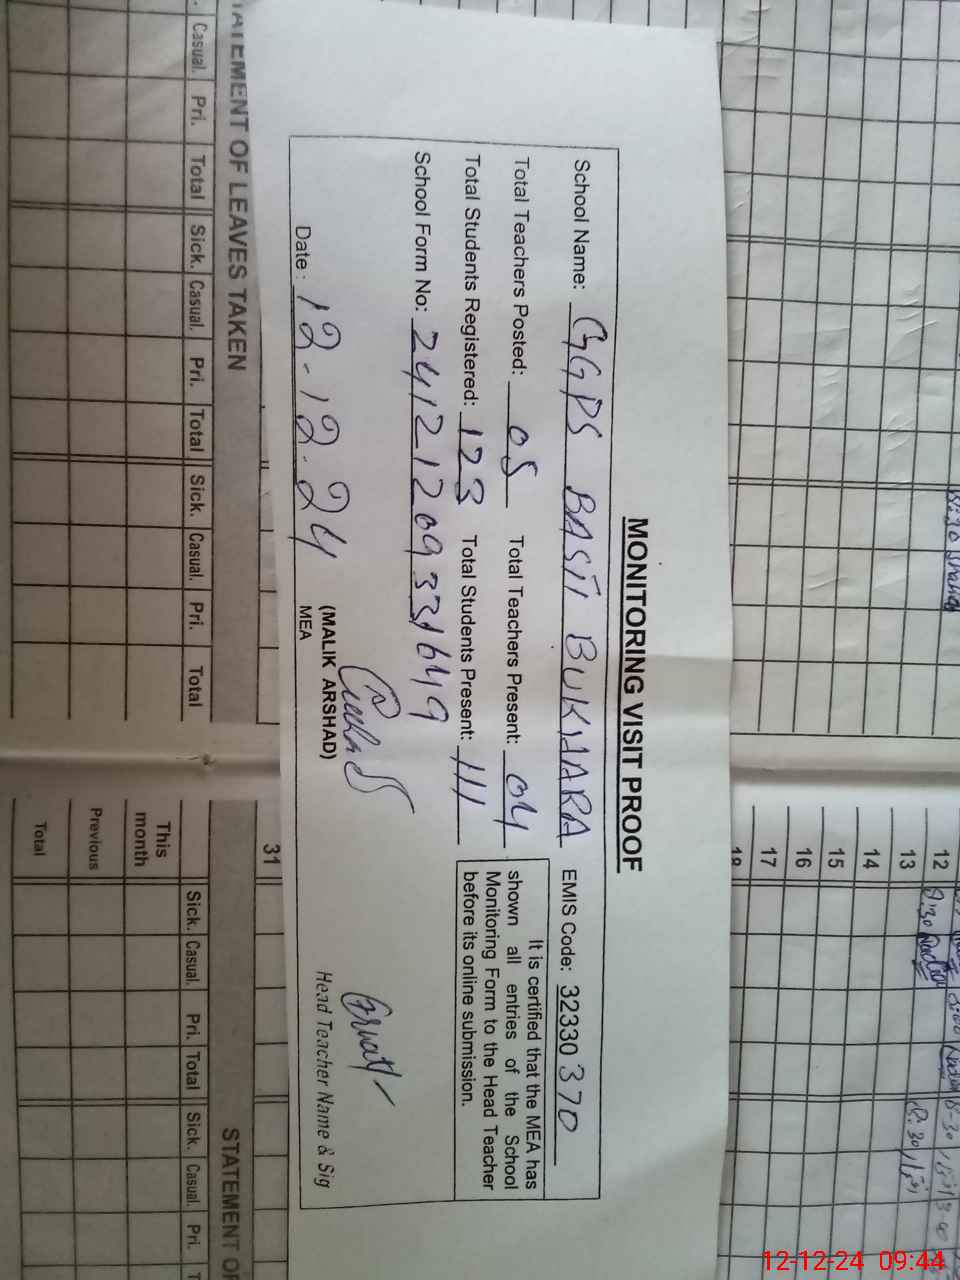 MONITORING VISIT PROOF
School Name: GGPS BASTI BUKHARA EMIS Code: 32330370
Total Teachers Posted: 05 Total Teachers Present: 04
Total Students Registered: 123 Total Students Present: 111
School Form No: 241212093331649
It is certified that the MEA has
shown all entries of the School
Monitoring Form to the Head Teacher
before its online submission.
Date: 12-12-24
(MALIK ARSHAD)
MEA
Head Teacher Name & Sig
12
13
14
15
16
17
18
31
STATEMENT OF LEAVES TAKEN
Casual. Pri. Total Sick. Casual. Pri. Total Sick. Casual. Pri. Total
STATEMENT OF
Sick. Casual. Pri. Total Sick. Casual. Pri.
This
month
Previous
Total
12-12-24 09:44